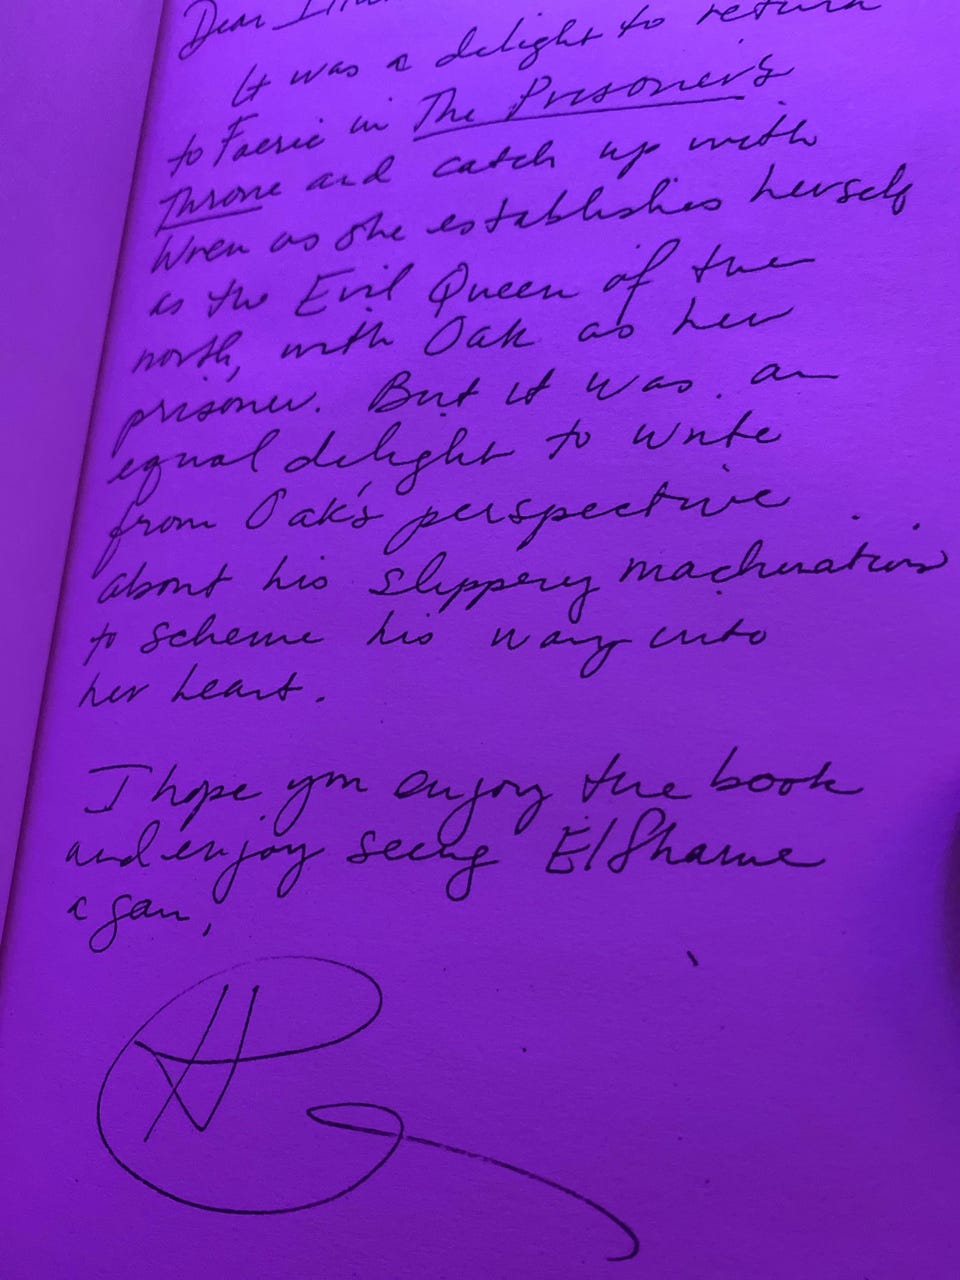 Dear
It was a delight to return
to Faerie in The Prisoner's
Throne and catch up with
Wren as she establishes herself
as the Evil Queen of the
north, with Oak as her
prisoner. But it was an
equal delight to write
from Oak's perspective
about his slippery machinations
to scheme his way into
her heart.
I hope you enjoy the book
and enjoy seeing Elfhame
again,